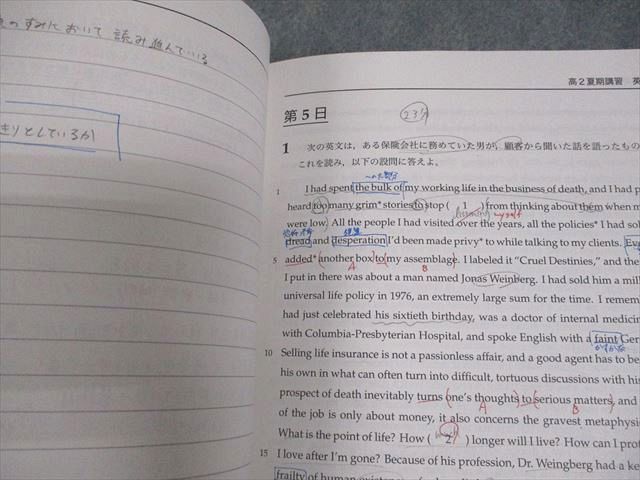 のすみにおいて 読み進んでいる
きりとしているか
高2夏期講習 英
第5日
23%
1 次の英文は、ある保険会社に務めていた男が、顧客から聞いた話を語ったもの
これを読み、以下の設問に答えよ。
〜の大部分
1 I had spent the bulk of my working life in the business of death, and I had p
heard too many grim* stories to stop ( 1 ) from thinking about them when m
myself
were low. All the people I had visited over the years, all the policies* I had sol
dread and desperation I'd been made privy* to while talking to my clients. Eve
5 added* another box to my assemblage. I labeled it "Cruel Destinies," and the
A B
I put in there was about a man named Jonas Weinberg. I had sold him a mill
universal life policy in 1976, an extremely large sum for the time. I remem
had just celebrated his sixtieth birthday, was a doctor of internal medicin
with Columbia-Presbyterian Hospital, and spoke English with a faint Ger
かすかな
10 Selling life insurance is not a passionless affair, and a good agent has to be
his own in what can often turn into difficult, tortuous discussions with his
prospect of death inevitably turns one's thoughts to serious matters, and
A B
of the job is only about money, it also concerns the gravest metaphysic
What is the point of life? How ( 2 ) longer will I live? How can I prot
15 I love after I'm gone? Because of his profession, Dr. Weingberg had a ke
frailty of human